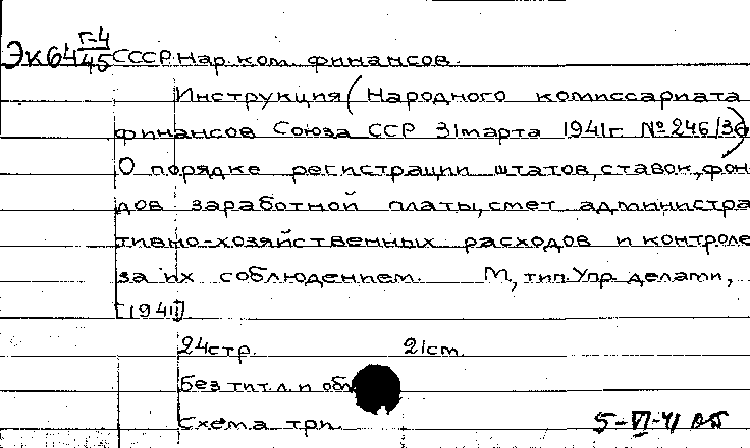 Эк64 Г-4/45 СССР Нар. ком. финансов.
Инструкция (Народного комиссариата
финансов Союза ССР 31 марта 1941 г. № 246/36)
О порядке регистрации штатов, ставок, фон
дов заработной платы, смет администра
тивно-хозяйственных расходов и контроле
за их соблюдением. М, тип. Упр. делами,
[1941]
24 стр. 21 см.
Без тит. л. и
Схема
5-VI-41